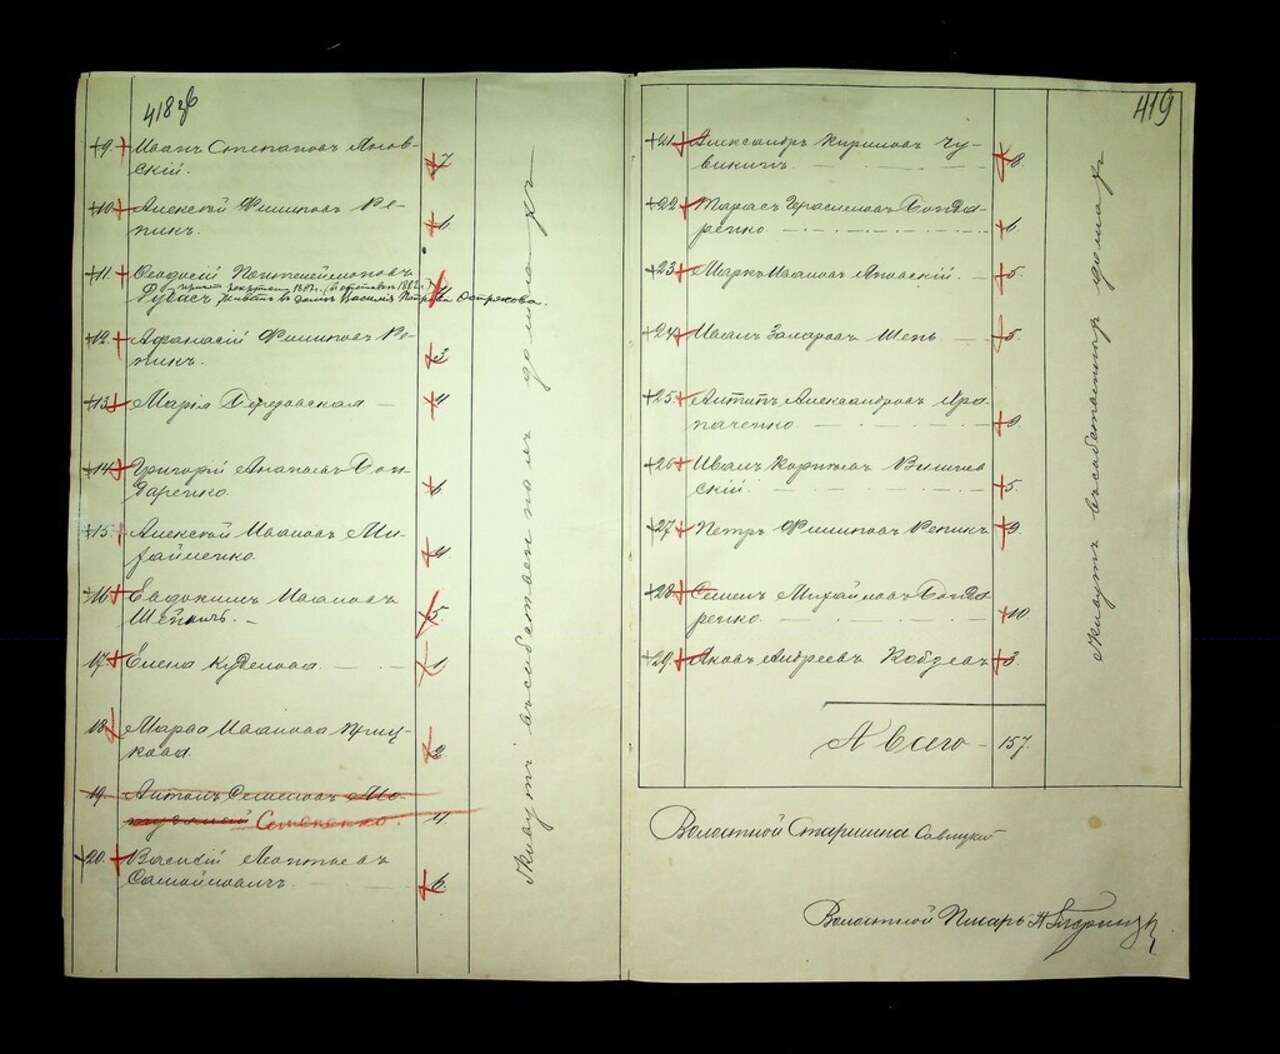 418 зв
+9. Иванъ Степановъ Янов-
скій. 7
+10. Алексѣй Филиповъ Ре-
пикъ. 6
+11. Феодосій Пантелеймоновъ
Рубасъ, живетъ въ домѣ Василія Петрова Острякова.
+12. Афанасій Филиповъ Ре-
пикъ. 3
+13. Марія Бередовская — 4
+14. Григорій Анановъ Бон-
даренко. 6
+15. Алексѣй Ивановъ Ми-
хайленко. 4
+16. Евдокимъ Ивановъ
Шейкинъ. — 5.
17. Елена Куделова. 1.
18. Марва Иванова Криц-
кова. 2
19. Антонъ Семеновъ
Семененко. 4
+20. Василій Леонтьевъ
Самойловичъ. 6.
Живутъ въ собственномъ домахъ
419
+21. Александръ Кириловъ Чу-
викинъ. 8.
+22. Тарасъ Герасимовъ Бонда-
ренко 6
+23. Маркъ Ивановъ Яновскій. 5.
+24. Иванъ Захаровъ Шень — 5.
+25. Антипъ Александровъ Хра-
паченко. 9.
+26. Иванъ Корнѣевъ Вишнев
скій. 5.
+27. Петръ Филиповъ Репикъ 9.
+28. Семенъ Михайловъ Бонда
ренко. 10
+29. Яковъ Андреевъ Кобзевъ 3.
А всего — 157.
Живутъ въ собственныхъ домахъ
Волостной Старшина Савицкій
Волостной Писарь